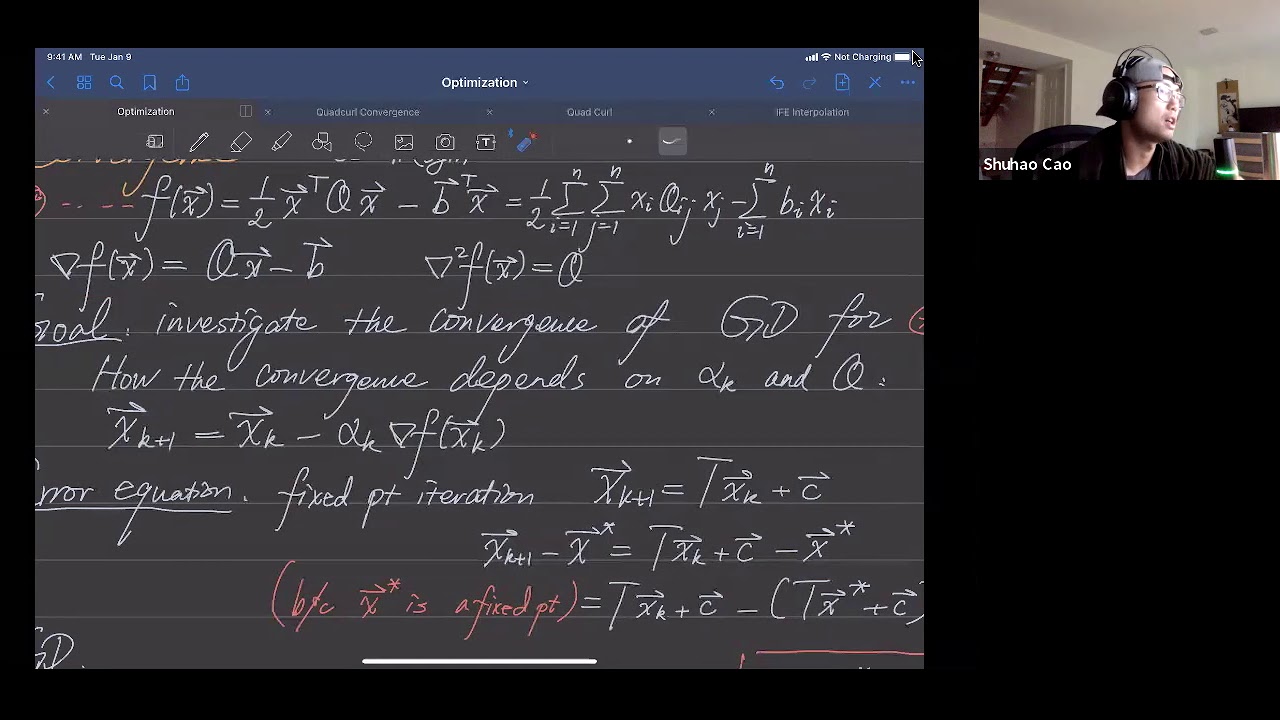 9:41 AM Tue Jan 9
Not Charging
Optimization
Optimization
Quadcurl Convergence
Quad Curl
IFE Interpolation
Shuhao Cao
f(x⃗) = 1/2 x⃗ᵀ Q x⃗ − b⃗ᵀ x⃗ = 1/2 Σ_{i=1}^{n} Σ_{j=1}^{n} x_i Q_{ij} x_j − Σ_{i=1}^{n} b_i x_i
∇f(x⃗) = Qx⃗ − b⃗ ∇²f(x⃗) = Q
Goal: investigate the convergence of GD for
How the convergence depends on α_k and Q.
x⃗_{k+1} = x⃗_k − α_k ∇f(x⃗_k)
Error equation. fixed pt iteration x⃗_{k+1} = Tx⃗_k + c⃗
x⃗_{k+1} − x⃗* = Tx⃗_k + c⃗ − x⃗*
(b/c x⃗* is a fixed pt) = Tx⃗_k + c⃗ − (Tx⃗* + c⃗)
GD.